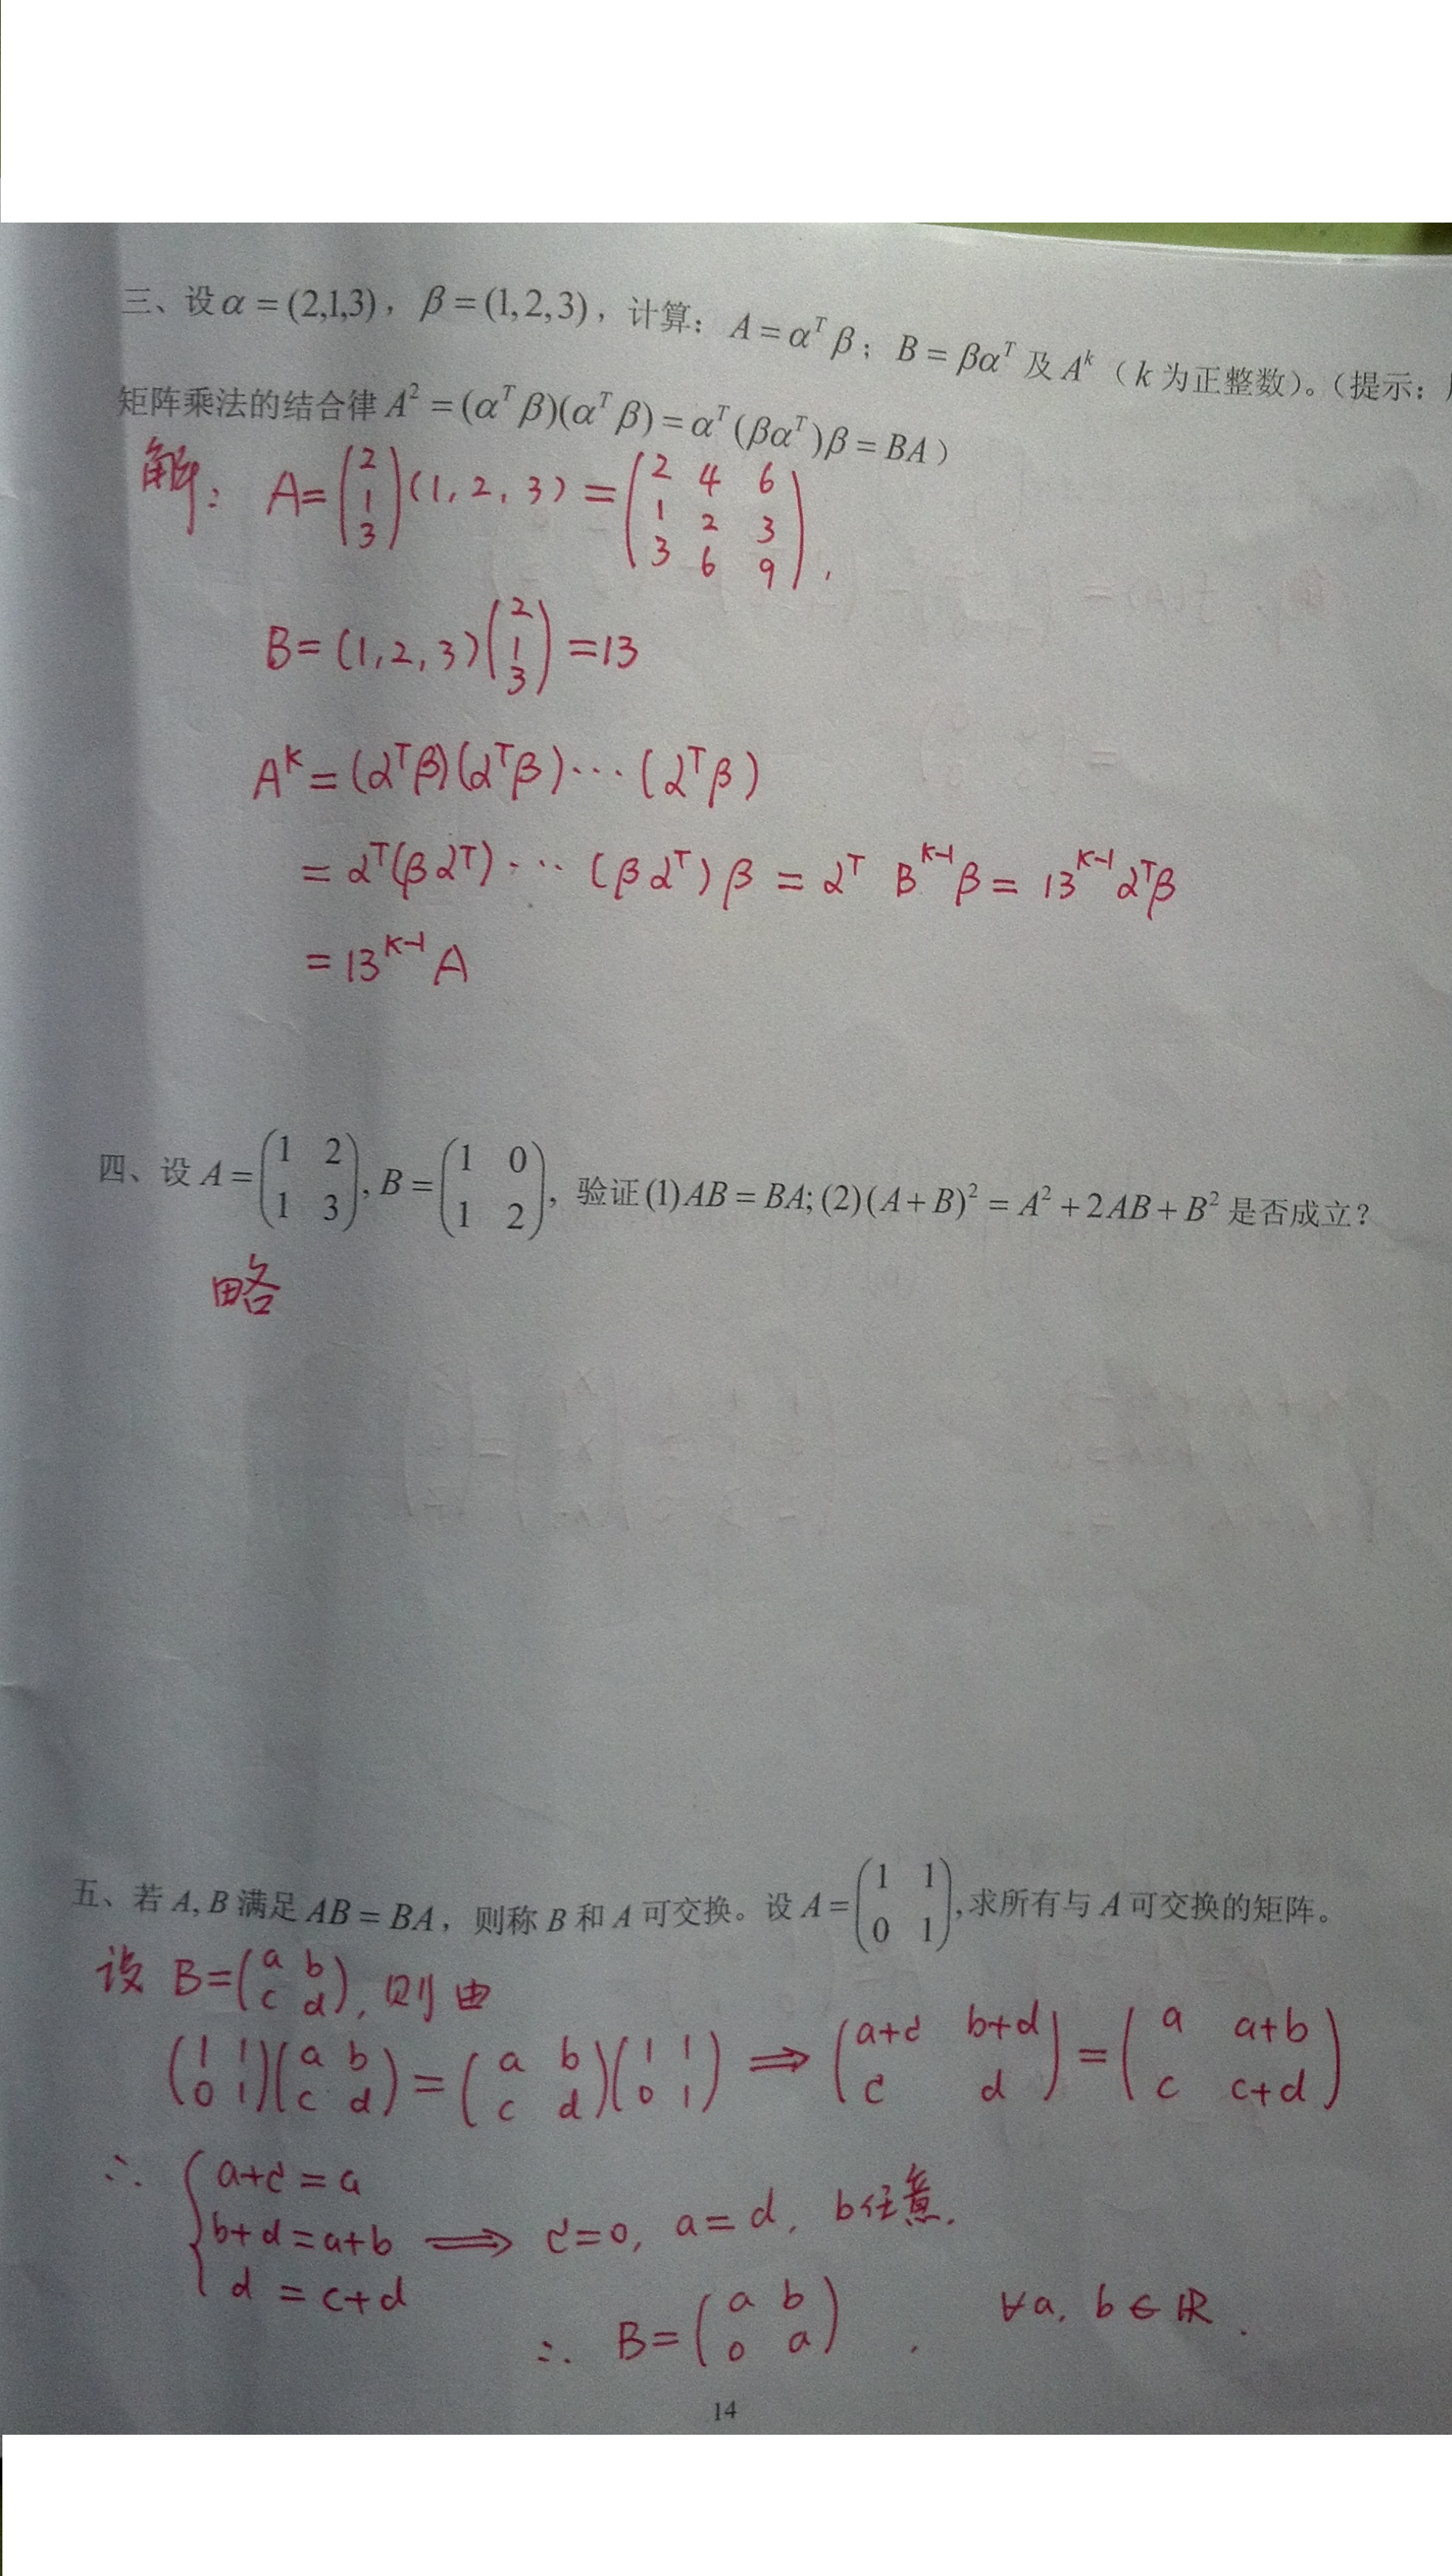 三、设 α = (2,1,3)，β = (1,2,3)，计算：A = α^T β；B = βα^T 及 A^k（k 为正整数）。（提示：
矩阵乘法的结合律 A² = (α^T β)(α^T β) = α^T (βα^T)β = BA）
解： A = (2 1 3) (1, 2, 3) = (2 4 6
1 2 3
3 6 9),
B = (1, 2, 3) (2 1 3) = 13
A^k = (α^T β)(α^T β)···(α^T β)
= α^T(β α^T)···(β α^T) β = α^T B^{k-1} β = 13^{k-1} α^T β
= 13^{k-1} A
四、设 A = (1 2
1 3), B = (1 0
1 2), 验证 (1) AB = BA; (2) (A + B)² = A² + 2AB + B² 是否成立？
略
五、若 A, B 满足 AB = BA，则称 B 和 A 可交换。设 A = (1 1
0 1), 求所有与 A 可交换的矩阵。
设 B = (a b
c d), 则由
(1 1
0 1)(a b
c d) = (a b
c d)(1 1
0 1) ⇒ (a+c b+d
c d) = (a a+b
c c+d)
∴ { a+c = a
b+d = a+b ⟹ c=0, a=d, b任意.
d = c+d
∴ B = (a b
0 a), ∀a, b ∈ ℝ.
14